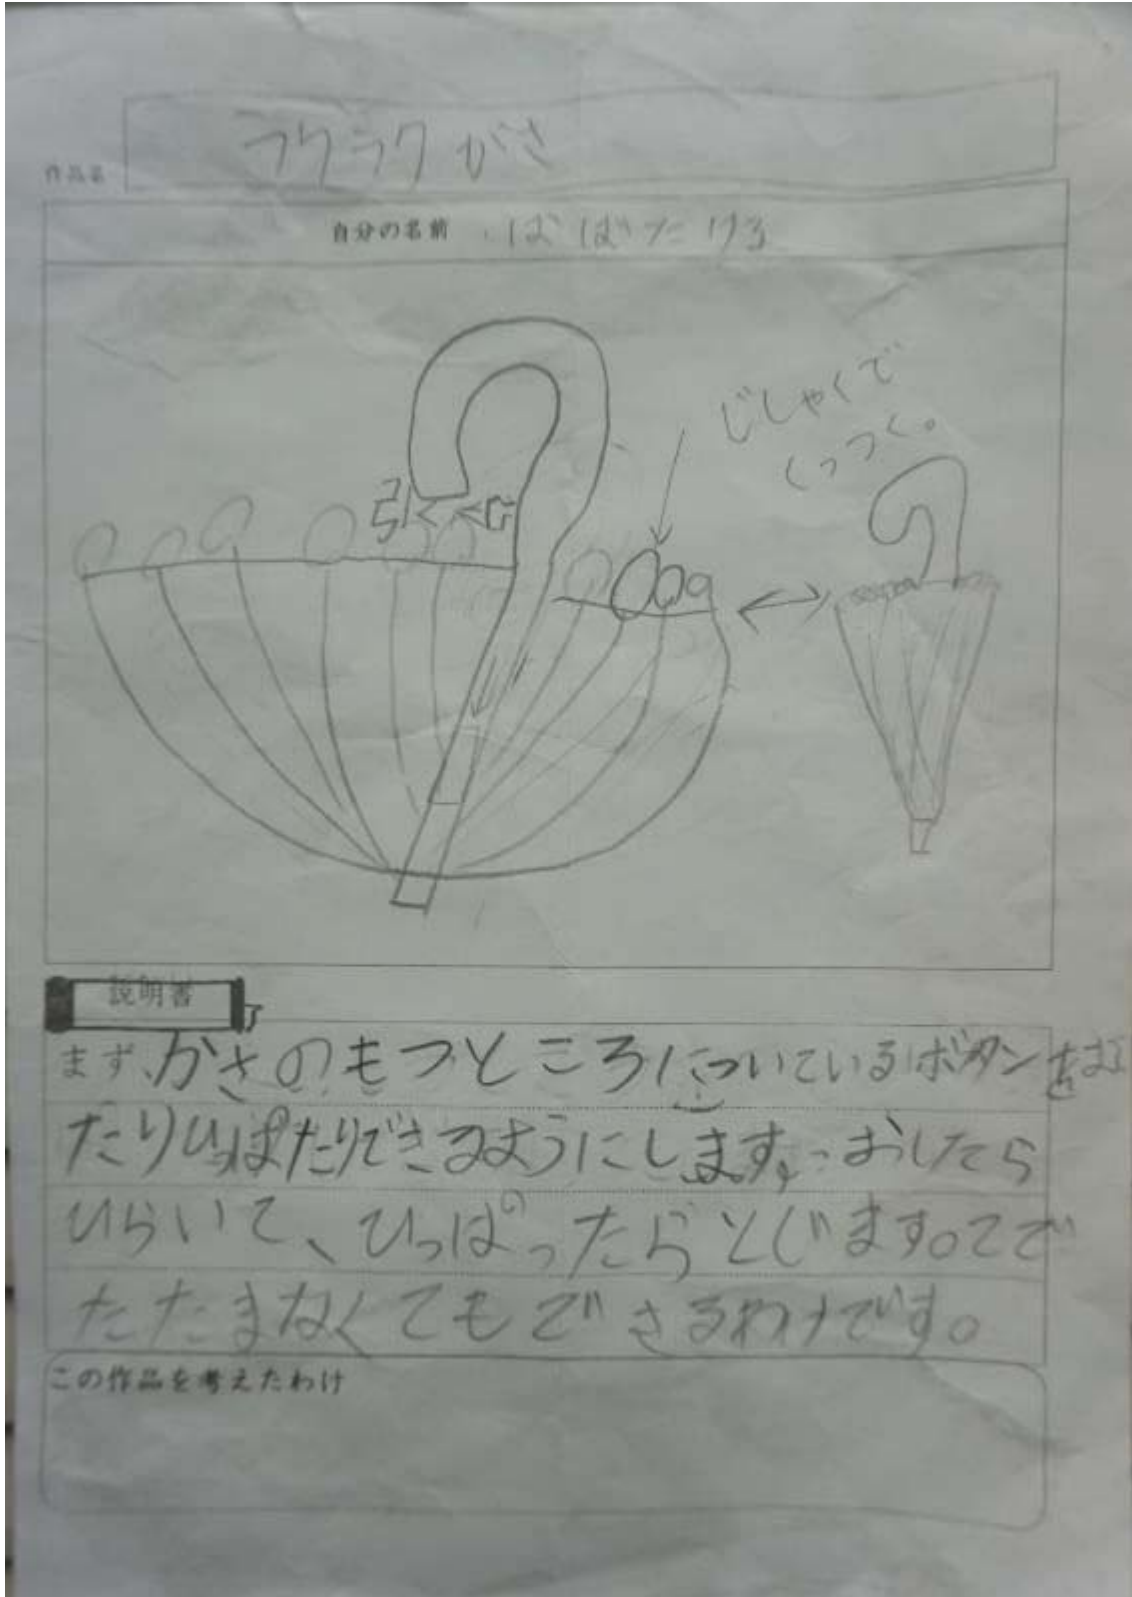 作品名 ラクラクがさ
自分の名前 ばばたける
じしゃくで
くっつく。
引
説明書
まず、かさのもつところについているボタンをおし
たりひっぱたりできるようにします。おしたら
ひらいて、ひっぱったらとじます。てで
たたまなくてもできるわけです。
この作品を考えたわけ